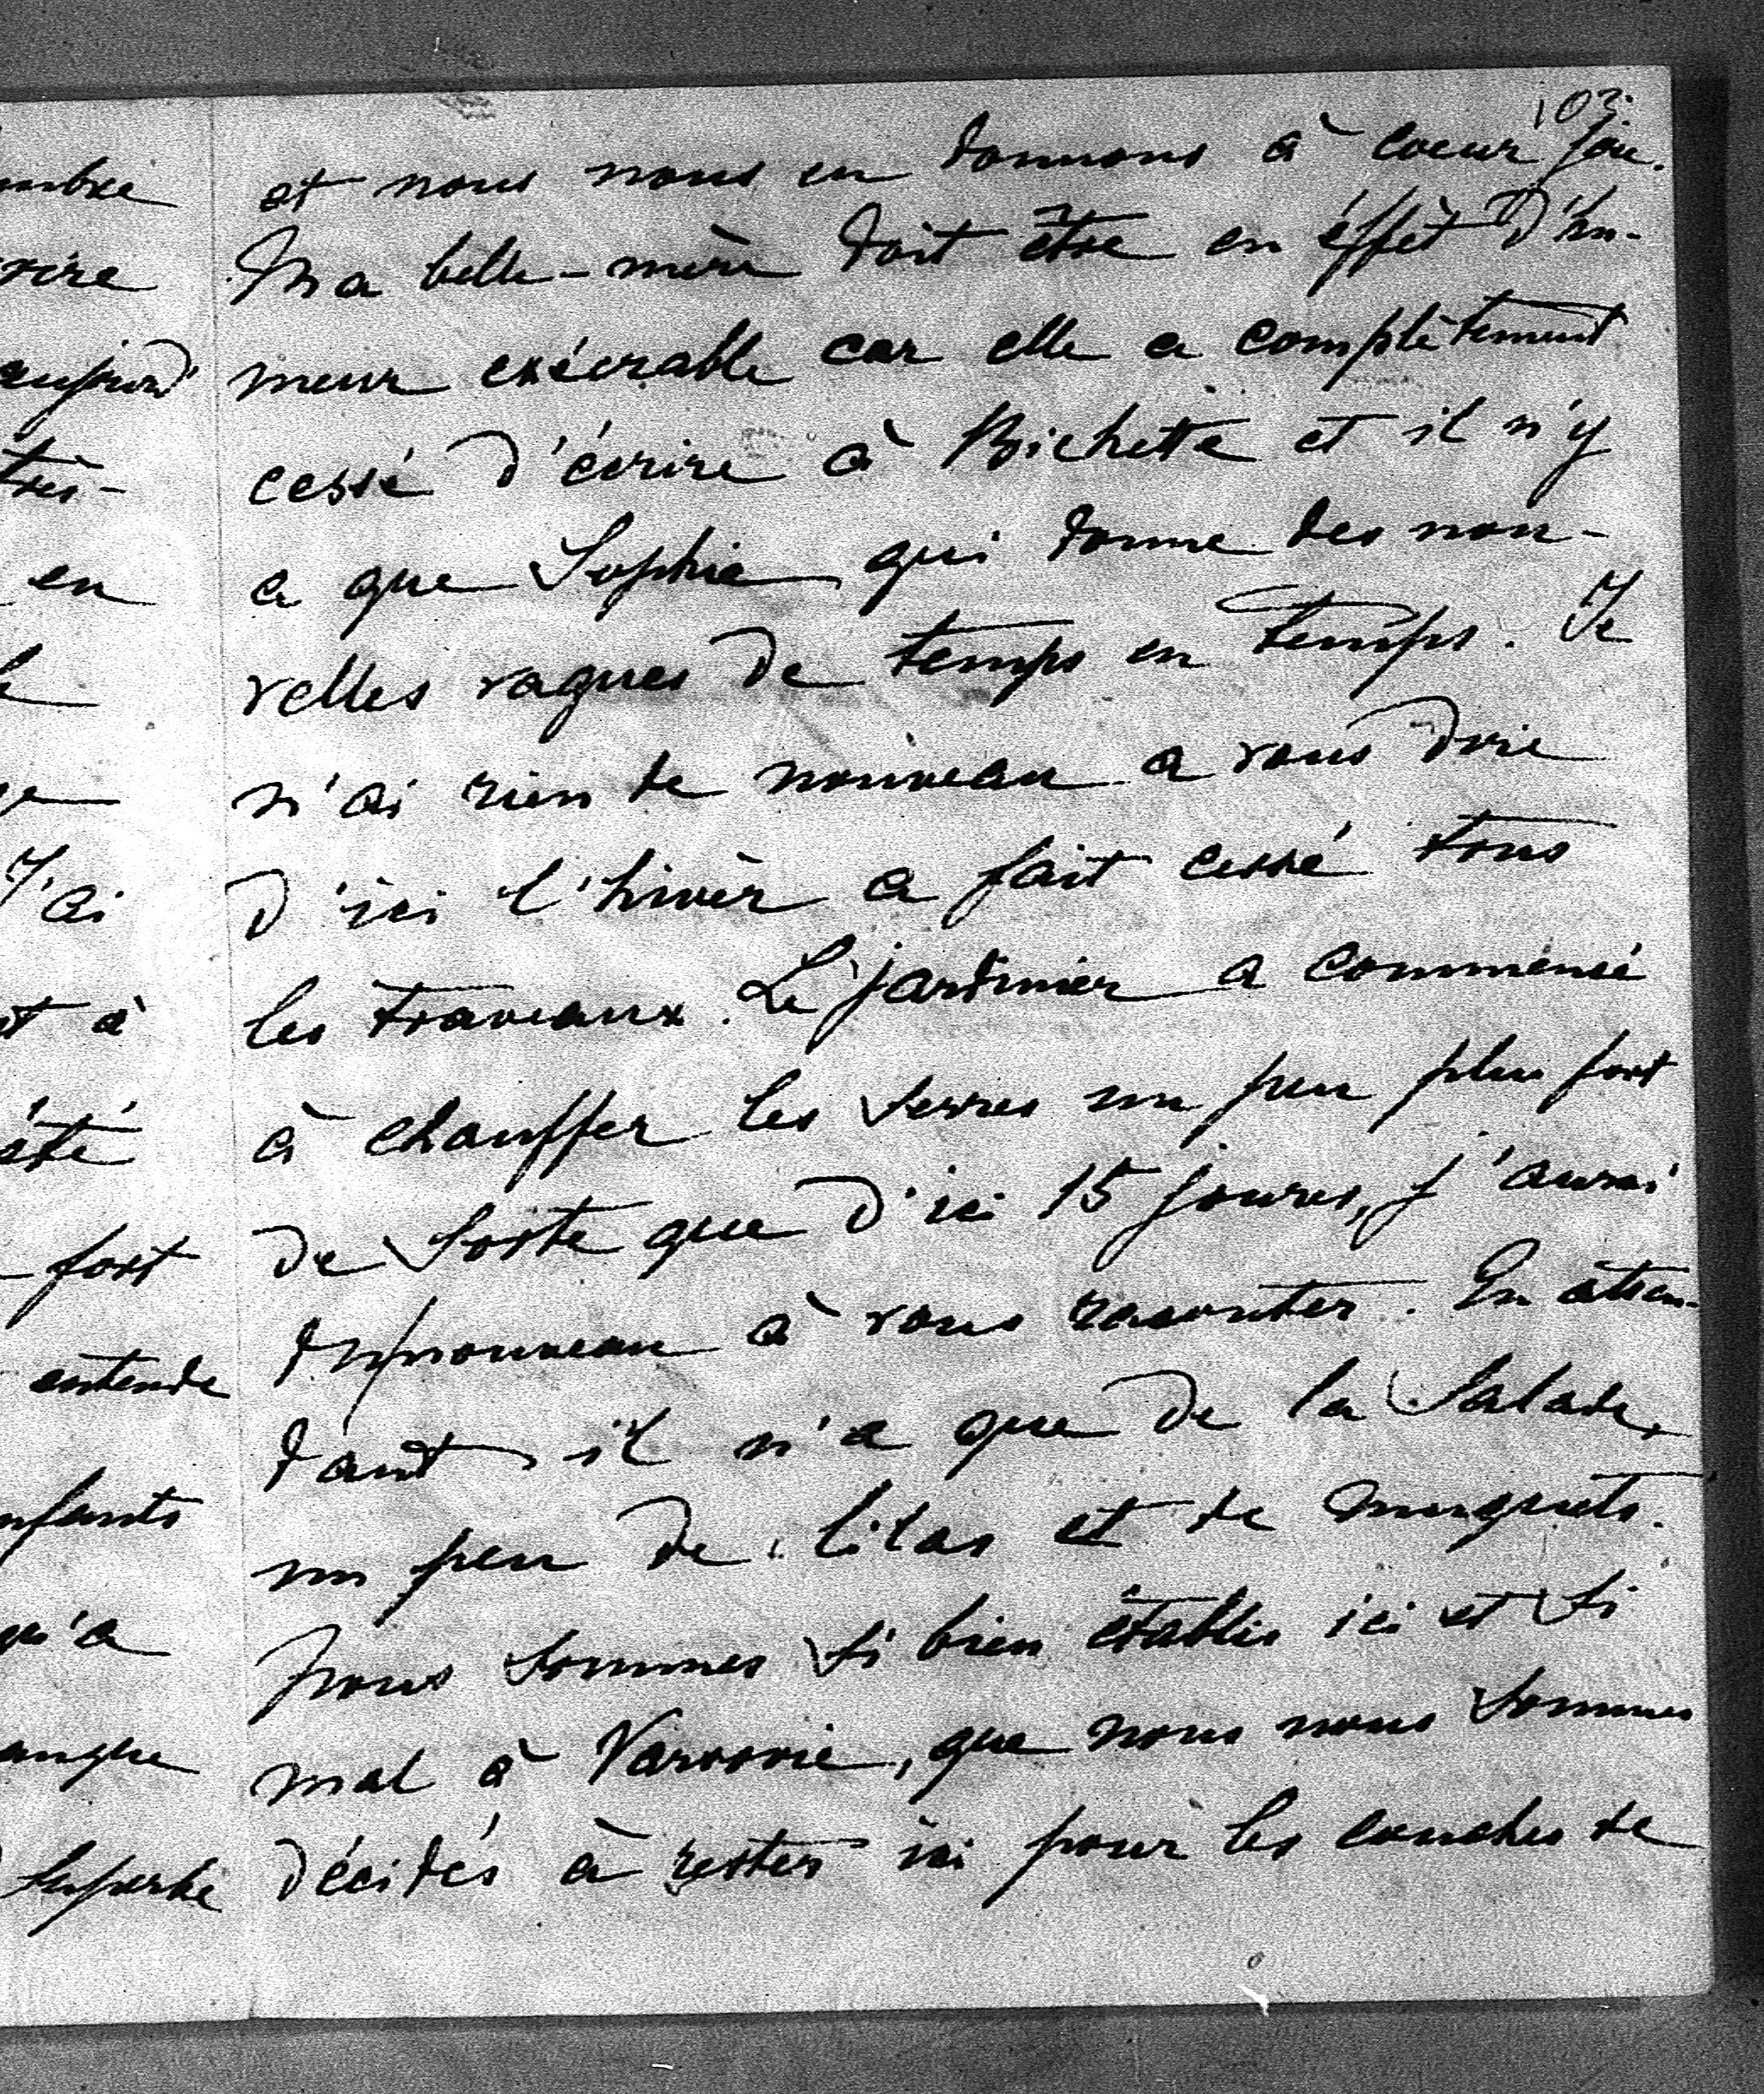 103.
et nous nous en donnons à coeur joie.
Ma belle-mère doit être en éffet d'hu-
meur exécrable car elle a complètement
cessé d'écrire à Bichette et il n'y
a que Sophie qui donne des nou-
velles vagues de temps en temps. Je
n'ai rien de nouveau a vous dire
d'ici l'hivèr a fait cessé tous
les travaux. Le jardinier a commensé
à chauffer les serres un peu plus fort
de sorte que d'ici 15 joures, j'aurai
du nouveau à vous raconter. En atten-
dant il n'a que de la salade,
un peu de lilas et de muguets.
Nous sommes si bien établis ici et si
mal à Varsovie, que nous nous sommes
décidés à rester ici pour les couches de
mbre
rire
aujourd'
très-
en
J'ai
t à
été
fort
entende
nfants
qu'a
angue
superbe